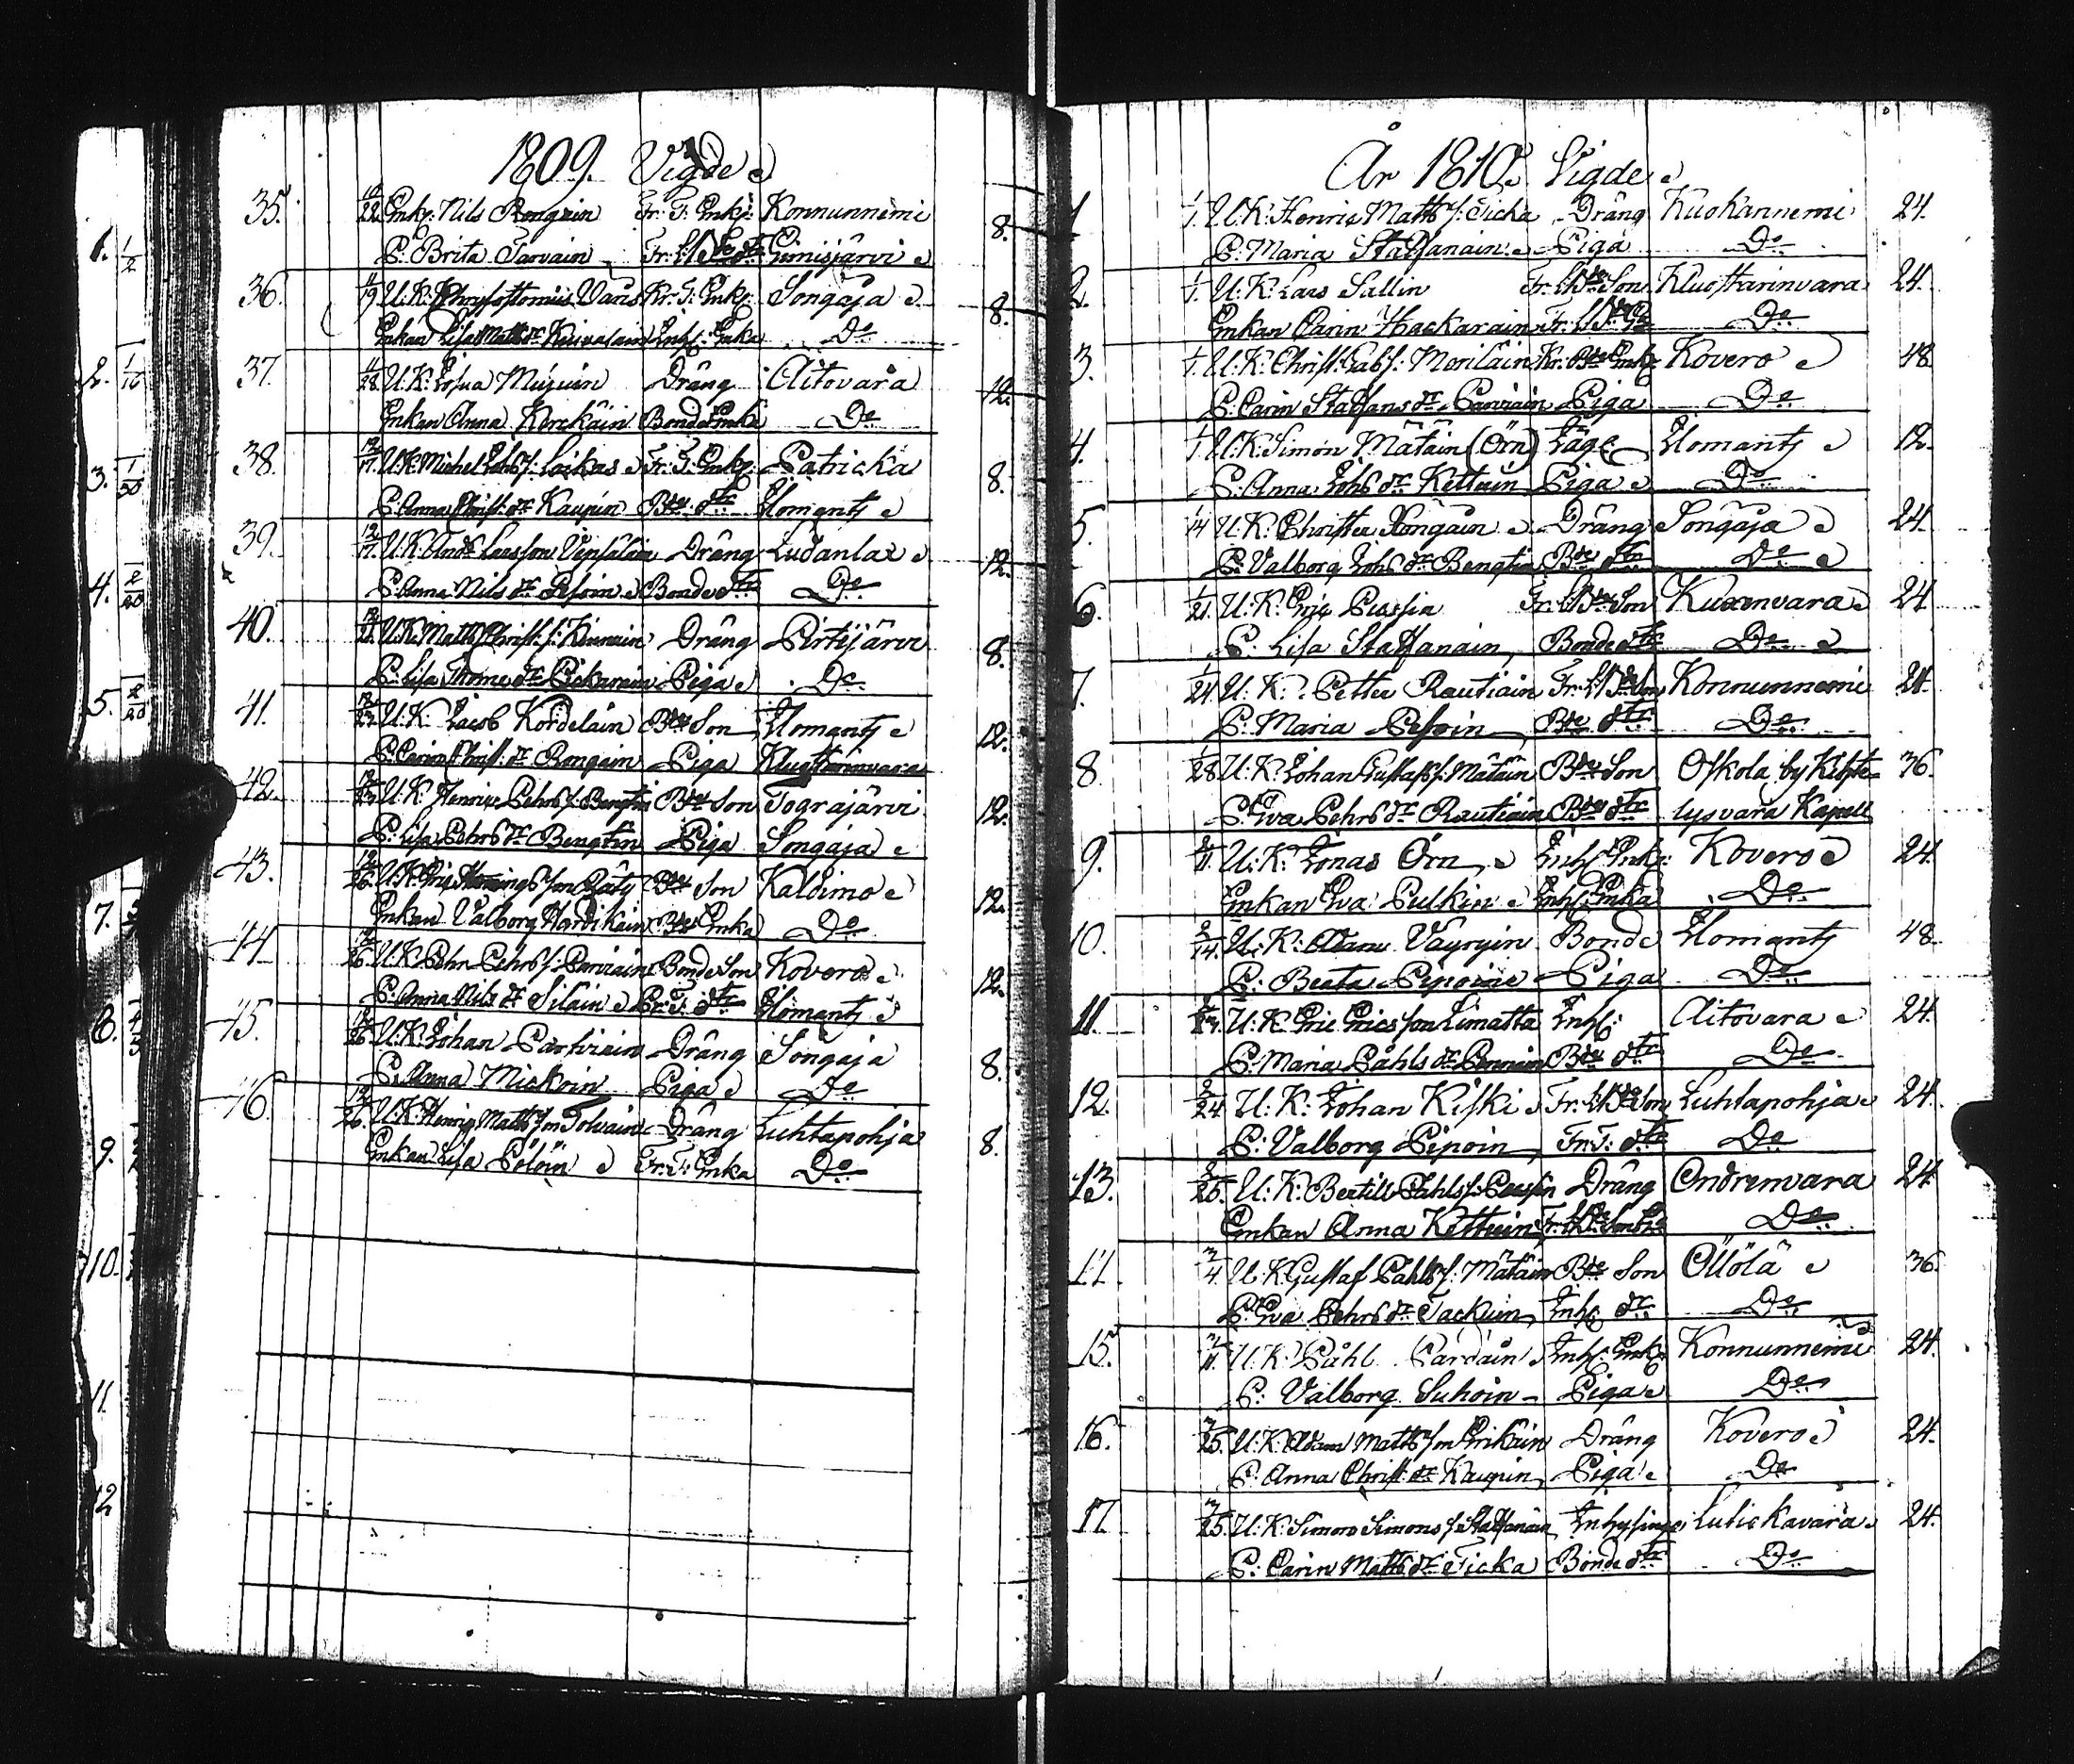 1809. Vigde
35. 10/22 Enkj: Nils Rongain Fr: T: Enkj: Konnunniemi 8.
P. Brita Tarvain Gimisjärvi
36. 11/19 U.K. Chrysostomus Vänš Kr: T: Enkj: Songaja 8.
Enkan Lisa Matts dr Enka Do
37. 11/28 U.K. Josua Müjuin Dräng Aitovara 12.
Enkan Anna Kerckäin Bonde Enka Do
38. 12/17 U.K. Michel Johs s: Loikas Fr: T: Enkj: Patricka 8.
P. Anna Christ: dr Kaupin Bde dtr Ilomants
39. 12/17 U.K. And: Larsson Vepsäläin Dräng Ludanlax 12.
P. Anna Nils dr Pesoin Bonde dtr Do
40. U.K. Matts Christ: s: Kinnuin Dräng Pirtijärvi 8.
P. Lisa Thoms dr Pickarain Piga Do
41. U.K. Jacob Kordelain Bde Son Ilomants 12.
P. Carin Christ: dr Rongain Piga Kluostarinvara
42. U.K. Henric Pehrs s: Bengtin Bde Son Tograjärvi 12.
P. Lisa Pehrs dr Bengtin Piga Songaja
43. 12/26 U.K. Eric Hennings son Räty Bde Son Kaldimo 12.
Enkan Valborg Hardikain Bde Enka Do
44. 12/26 U.K. Pehr Pehrs s: Parviain Bonde Son Kovero 12.
P. Anna Nils dr Silain Fr: T: dtr Ilomants
45. 12/26 U.K. Johan Parfviain Dräng Songaja 8.
P. Anna Mickoin Piga Do
46. 12/26 U.K. Henric Matts son Tolvain Dräng Luhtapohja 8.
Enkan Lisa Pölöin Fr: T: Enka Do
År 1810. Vigde
1 1/1. U.K. Henric Matts s: Ticka Dräng Kuokanniemi 24.
P. Maria Staffanain Piga Do
2. 1/1. U.K. Lars Sallin Fr: Bde Son Kluostarinvara 24.
Enkan Carin Hackarain Do
3. 1/1. U.K. Christ: Gabs: Morilain Kr: Bde Enkj: Kovero 48
P. Carin Staffans dr Parviain Piga Do
4. 1/1. U.K. Simon Mätäin (Örn) Ilomants 12.
P. Anna Johs dr Kettuin Piga Do
5. 1/14 U.K. Christer Rongain Dräng Songaja 24.
P. Valborg Johs dr Bengtin Bde dtr Do
6. 1/21. U.K. Eric Purssia Fr: Bde Son Kuxenvara 24
P. Lisa Staffanain Bonde dtr Do
7. 1/21. U.K. Petter Rautiain Fr: Bde Son Konnunniemi 24.
P. Maria Pesoin Bde dtr Do
8 1/28. U.K. Johan Gustafs s: Mätäin Bde Son Oskola by Kihte= 36.
P. Eva Pehrs dr Rautiain Bde dtr lysvara Kapell
9. 2/11. U.K. Jonas Örn Inhs: Enkj: Kovero 24.
Enkan Eva Pulkin Inhs: Enka Do
10. 2/14. U.K. Adam Väyryin Bonde Ilomants 48
P. Beata Pipoin Piga Do
11. U.K. Eric Ericsson Limatta Inhs: Aitovara 24.
P. Maria Påhls dr Pennain Bde dtr Do
12. 2/24. U.K. Johan Kiski Fr: Bde Son Luhtapohja 24.
P. Valborg Pipoin Fr: T: dtr Do
13. 2/25. U.K. Bertill Påhls s: Dräng Ondrenvara 24
Enkan Anna Kettuin Do
14 3/4 U.K. Gustaf Påhls s: Mätäin Bde Son Öllölä 36.
P. Eva Pehrs dr Tackuin Inhs dr Do
15. 3/11. U.K. Påhl Pardain Inhs: Enkj: Konnunniemi 24.
P. Valborg Suhoin Piga Do
16. 3/25. U.K. Adam Matts son Erikäin Dräng Kovero 24.
P. Anna Christ: dr Kaupin Piga Do
17. 3/25. U.K. Simon Simons s: Staffanain Inhysing Lutickavara 24.
P. Carin Matts dr Ticka Bonde dtr Do
1. 1/2
2. 1/16
3. 1/30
4. 2/20
5. 2/20
7.
8.
9.
10.
11.
12